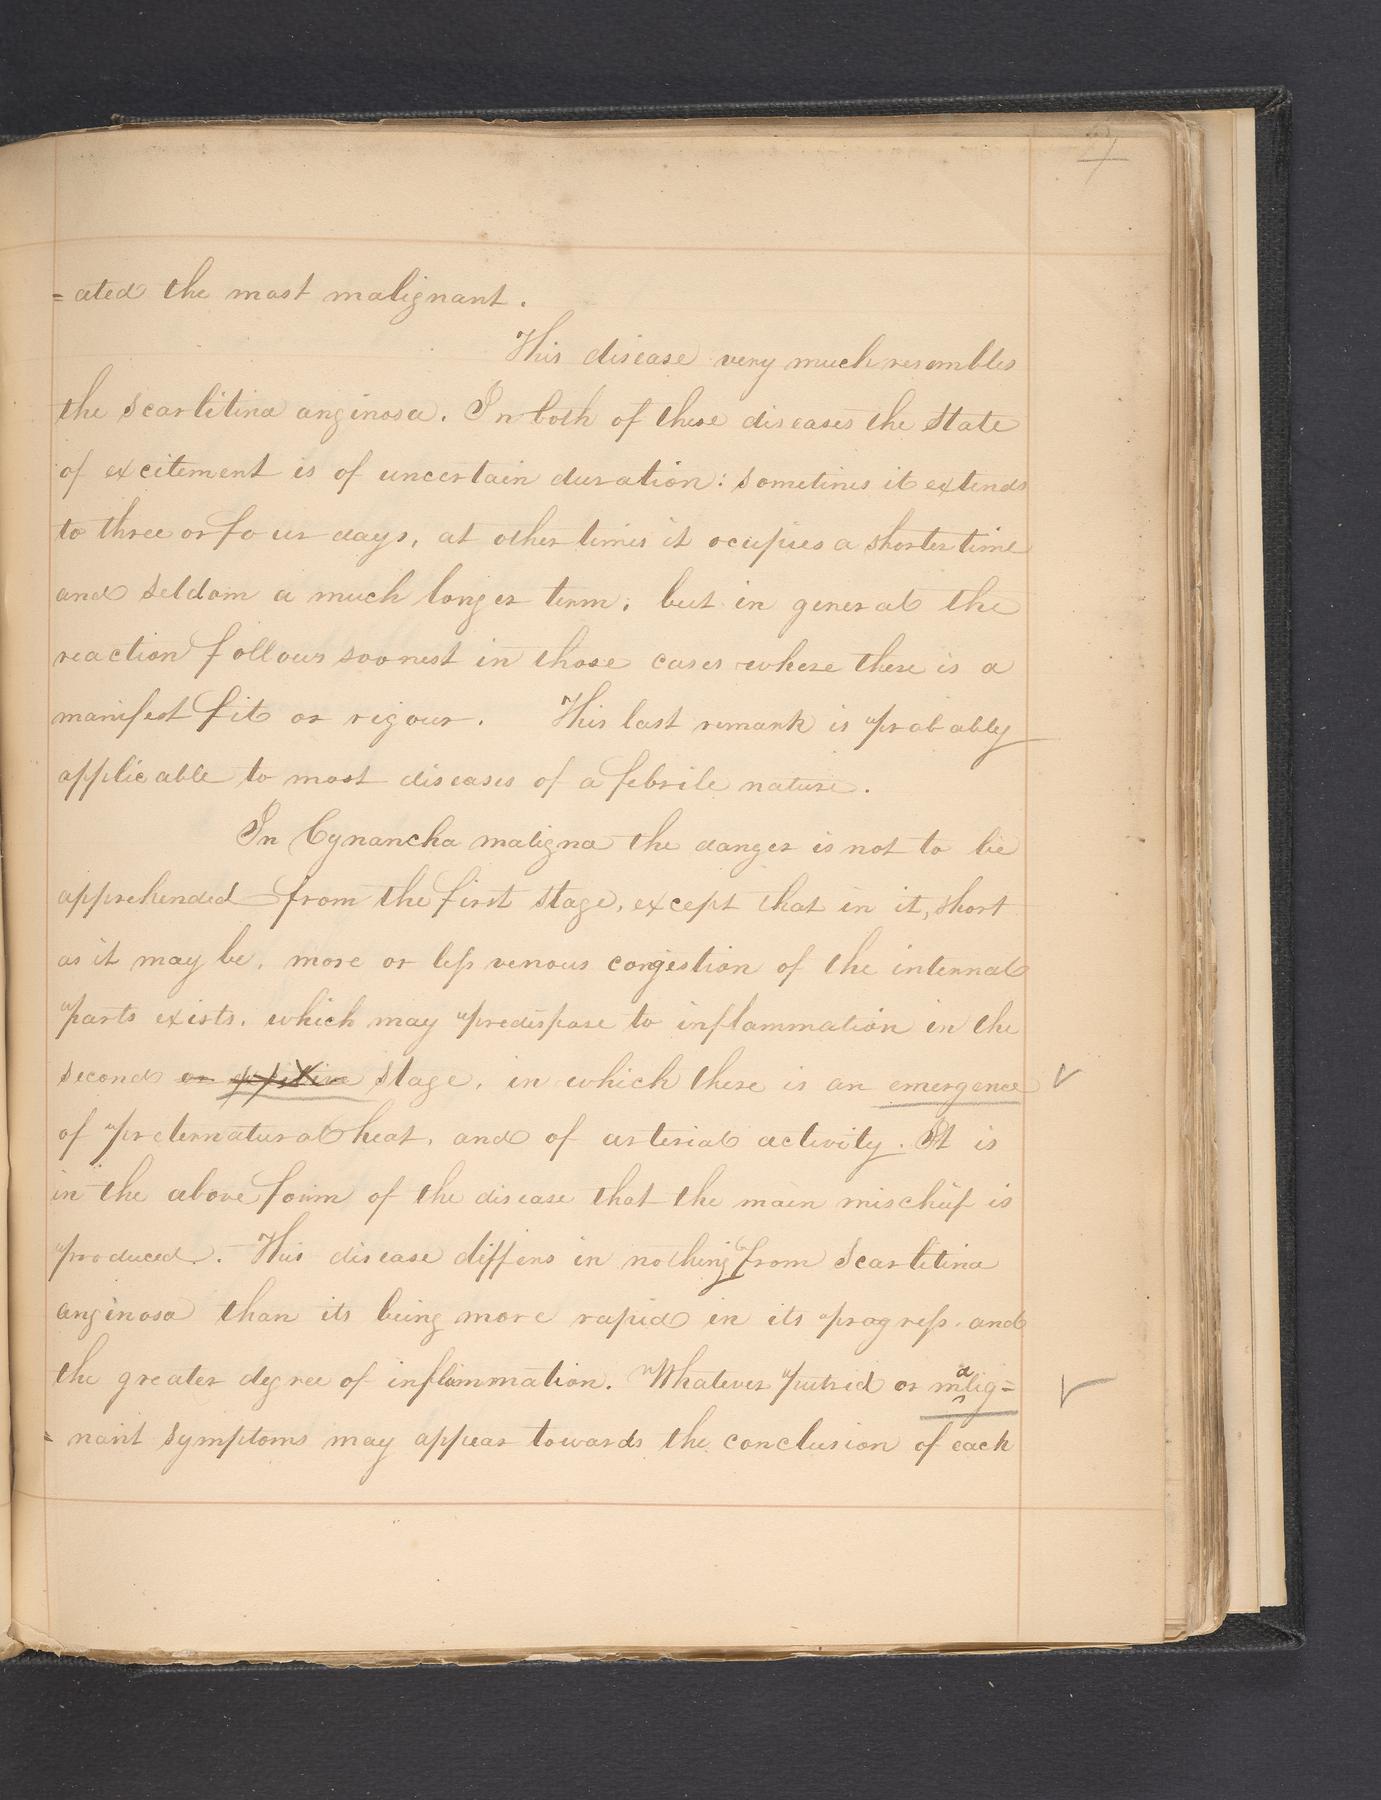 7
=ated the most malignant.
This disease very much resembles
the Scarlitina anginosa. In both of these diseases the State
of excitement is of uncertain duration: Sometimes it extends
to three or four days, at other times it ocupies a shorter time
and seldom a much longer term; but in general the
reaction follows soonest in those cases where there is a
manifest fit or rigour. This last remark is probably
applicable to most diseases of a febrile nature.
In Cynancha maligna the danger is not to be
apprehended from the first stage, except that in it, short
as it may be, more or less venous congestion of the internal
parts exists, which may predispose to inflammation in the
second or stage, in which there is an emergence
of preternatural heat, and of arterial activity. It is
in the above form of the disease that the main mischief is
produced. This disease differs in nothing from Scarlitina
anginosa than its being more rapid in its progress and
the greater degree of inflammation. Whatever putrid or malig=
=nant symptoms may appear towards the conclusion of each